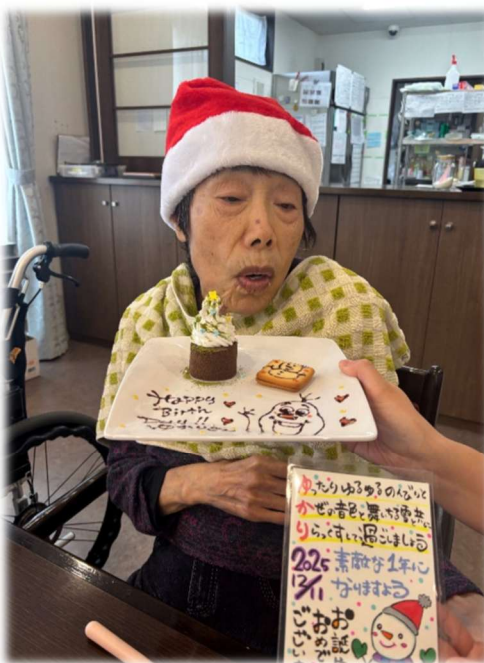 Happy
Birth
Day!!
ゆったりゆるゆるのんびりと
かぜの音色と舞いちる雪と共に
りらっくすして過ごしましょう
2025
12/11
素敵な1年に
なりますよう
お誕
おめで
ござい